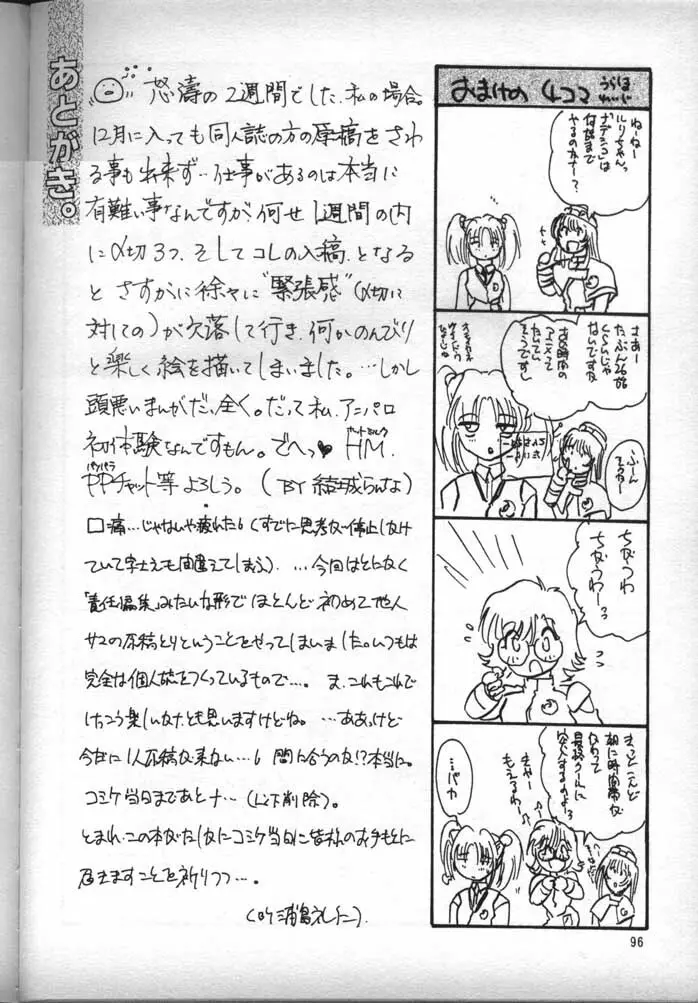 あとがき。
怒濤の2週間でした、私の場合。
12月に入っても同人誌の方の原稿をさわ
る事も出来ず…仕事があるのは本当に
有難い事なんですが、何せ1週間の内
に〆切3つ、そしてコレの入稿、となる
と さすがに徐々に"緊張感"(〆切に
対しての)が欠落して行き、何かのんびり
と楽しく絵を描いてしまいました。…しかし
頭悪いまんがだ、全く。だって私、アニパロ
初体験なんですもん。でへっ♥ HM、
PPチャット等よろしう。(BY 結城らんな)
口痛…じゃないや疲れた
ていて字さえも間違えてしまう)。…今回はとにかく
「責任編集」みたいな形でほとんど初めて他人
サマの原稿とりということをやってしまいました。いつもは
完全な個人誌をつくっているもので…。ま、これもこれで
けっこう楽しいなとも思いますけどね。…ああっけど
今だに1人原稿が来ない…。間に合うのか!?本当に。
コミケ当日まであと十…(以下削除)。
ともあれ、この本がたしかにコミケ当日に皆様のお手もとに
届きますことを祈りつつ…。
おまけの 4コマ
ねーねー
ルリちゃんっ
ナデシコは
何話まで
やるのかなー?
さあー
たぶん26話
くらいじゃ
ないですか
アニメって
たいてい
そうですし
ふーん
ちがうわ
ちがうわーっ
きっとこんど
朝に時間帯が
かわって
きゃー
もえるわー
…バカ
96